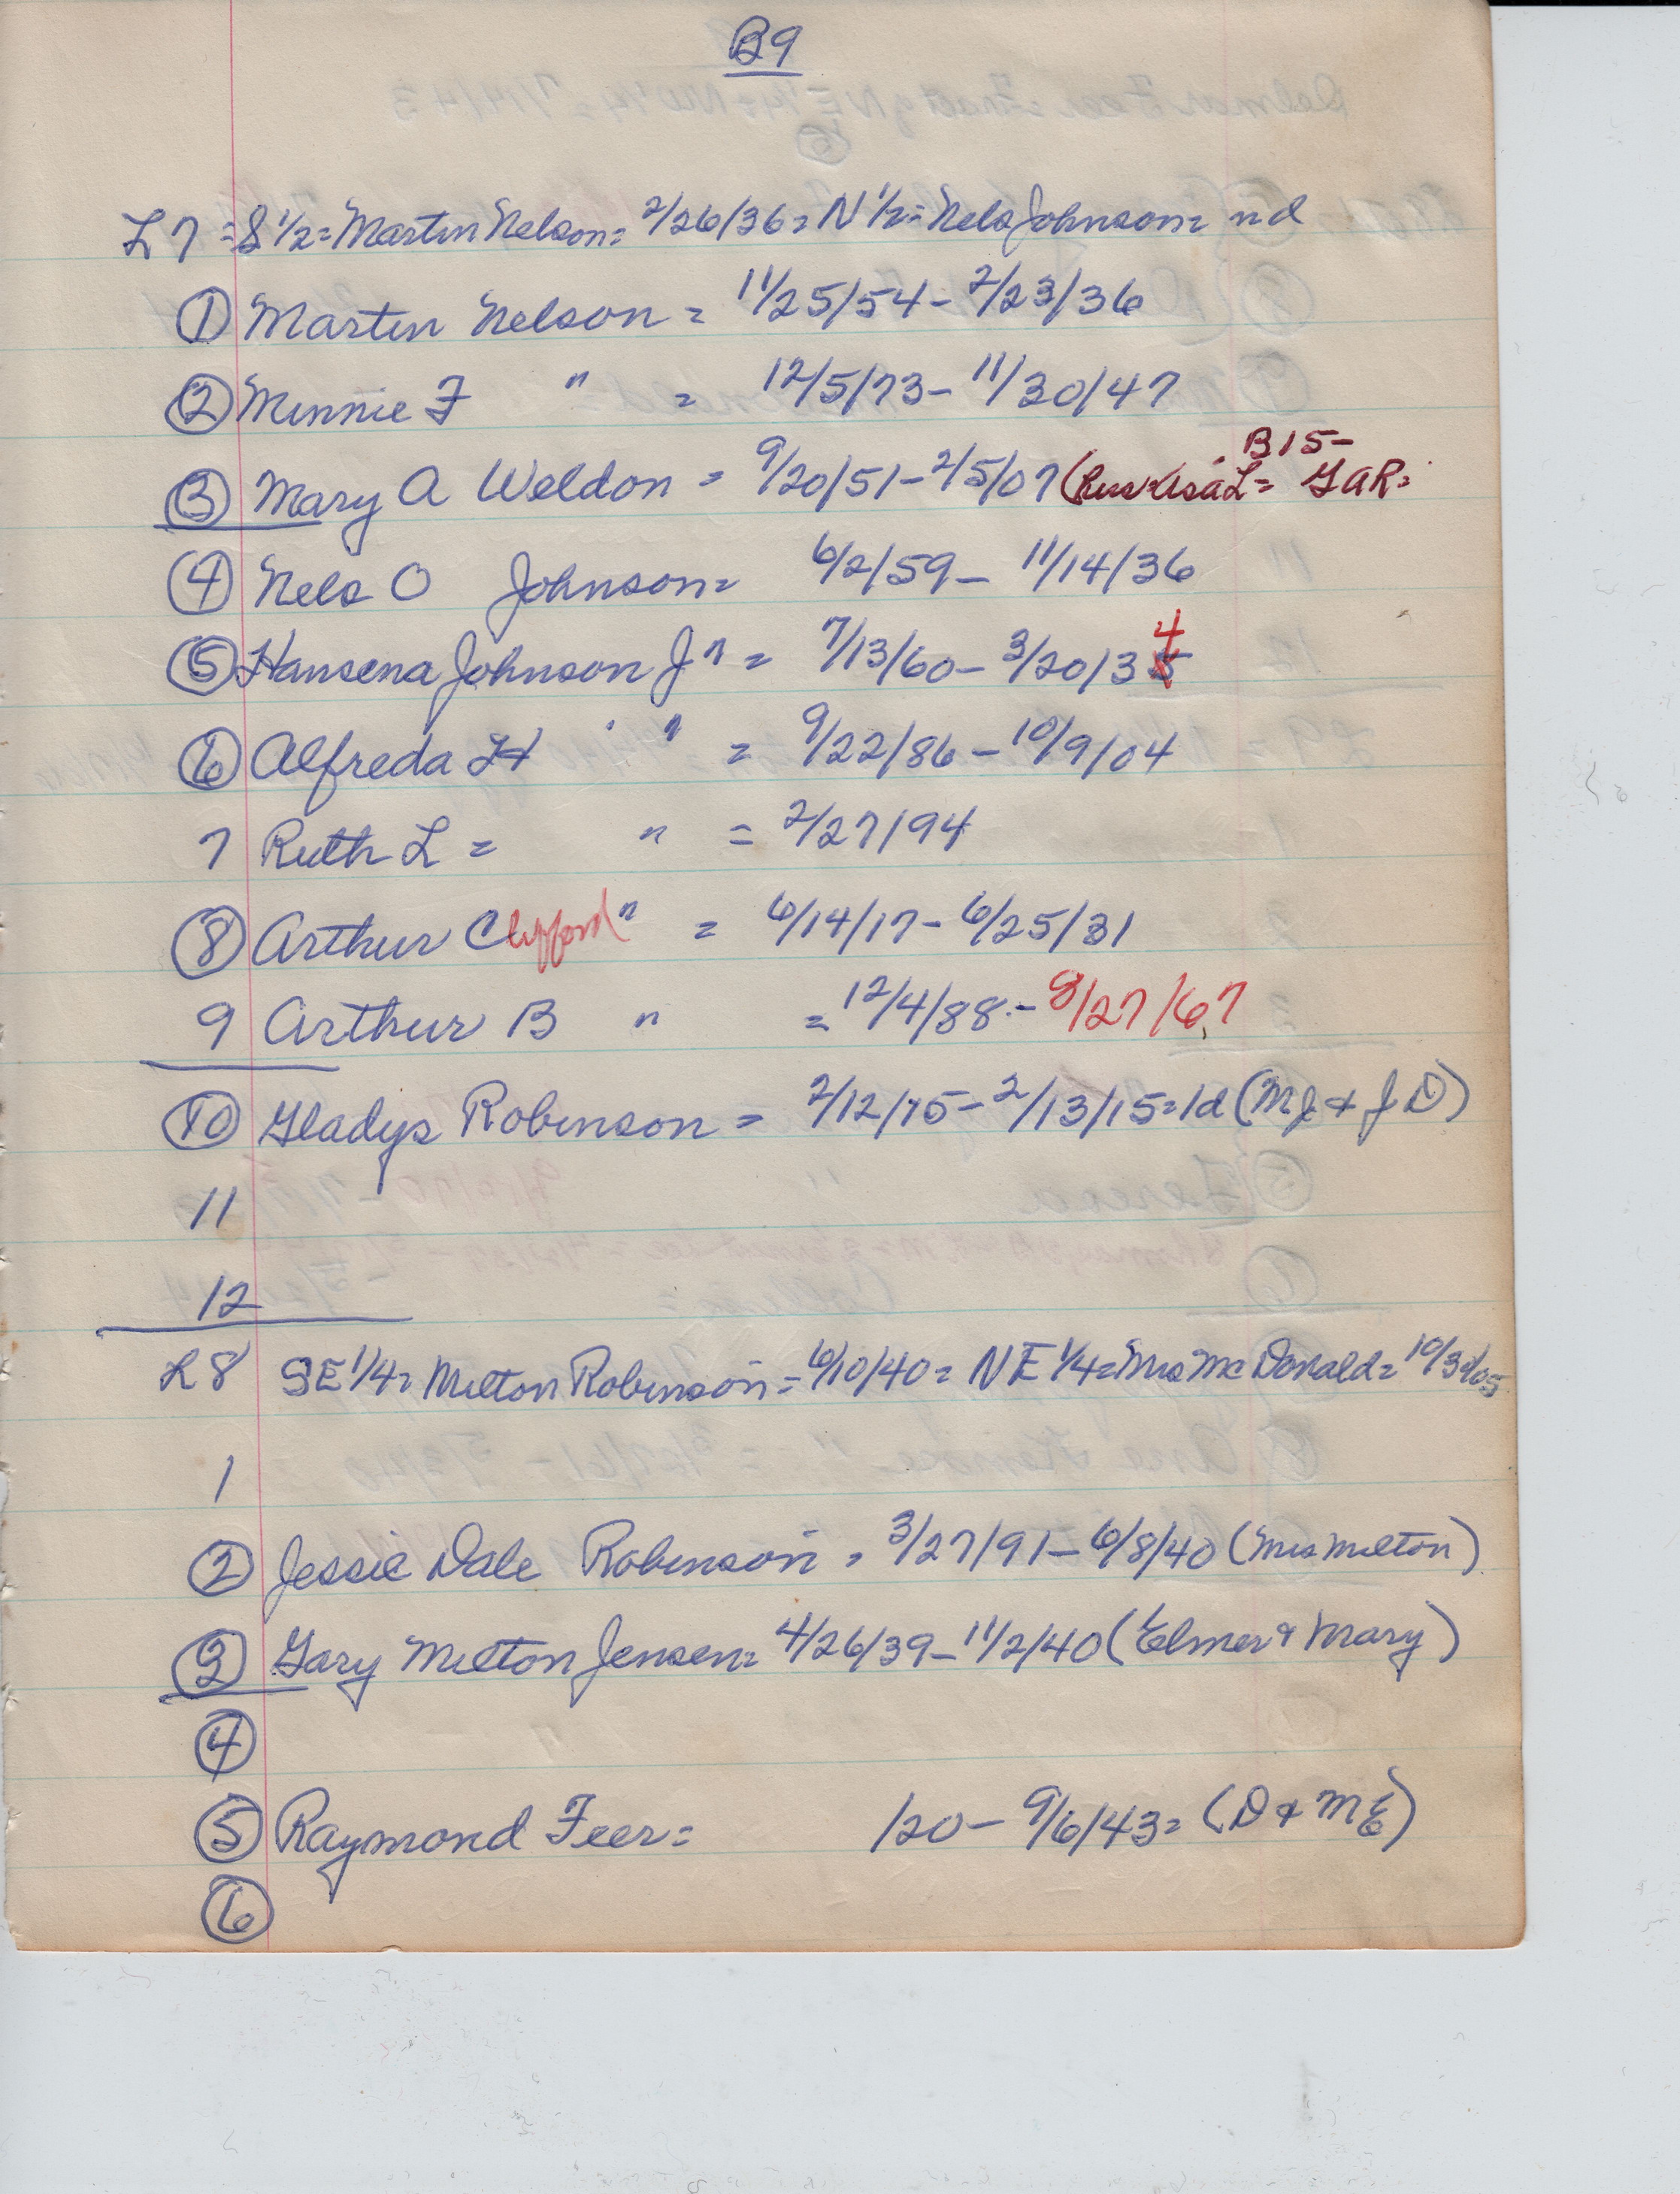 B9
L7 = S 1/2 = Martin Nelson = 2/26/36 = N 1/2 = Nels Johnson = nd
1 Martin Nelson = 11/25/54 - 2/23/36
2 Minnie F " = 12/5/73 - 11/30/47
B15-
3 Mary A Weldon = 9/20/51 - 2/5/07 (Hus = Asa L = GAR =
4 Nels O Johnson = 6/2/59 - 11/14/36
4
5 Hansena Johnson Jn = 7/13/60 - 3/20/35
6 Alfreda H " " = 9/22/86 - 10/9/04
7 Ruth L = " = 2/27/94
8 Arthur Clifford " = 6/14/17 - 6/25/31
9 Arthur B " = 12/4/88 - 8/27/67
10 Gladys Robinson = 2/12/15 - 2/13/15 = 1d (MJ + JD)
11
12
L8 SE 1/4 = Milton Robinson = 6/10/40 = NE 1/4 = Mrs McDonald = 10/30/05
1
2 Jessie Dale Robinson = 3/27/91 - 6/8/40 (Mrs Milton)
3 Gary Milton Jensen = 4/26/39 - 11/2/40 (Elmer + Mary)
4
5 Raymond Feer = /20 - 9/6/43 = (D + ME)
6